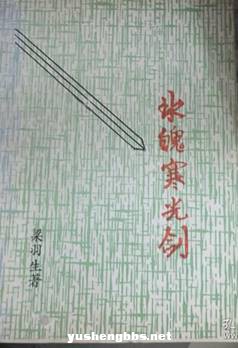 冰魄寒光剑
梁羽生著
yushengbbs.net